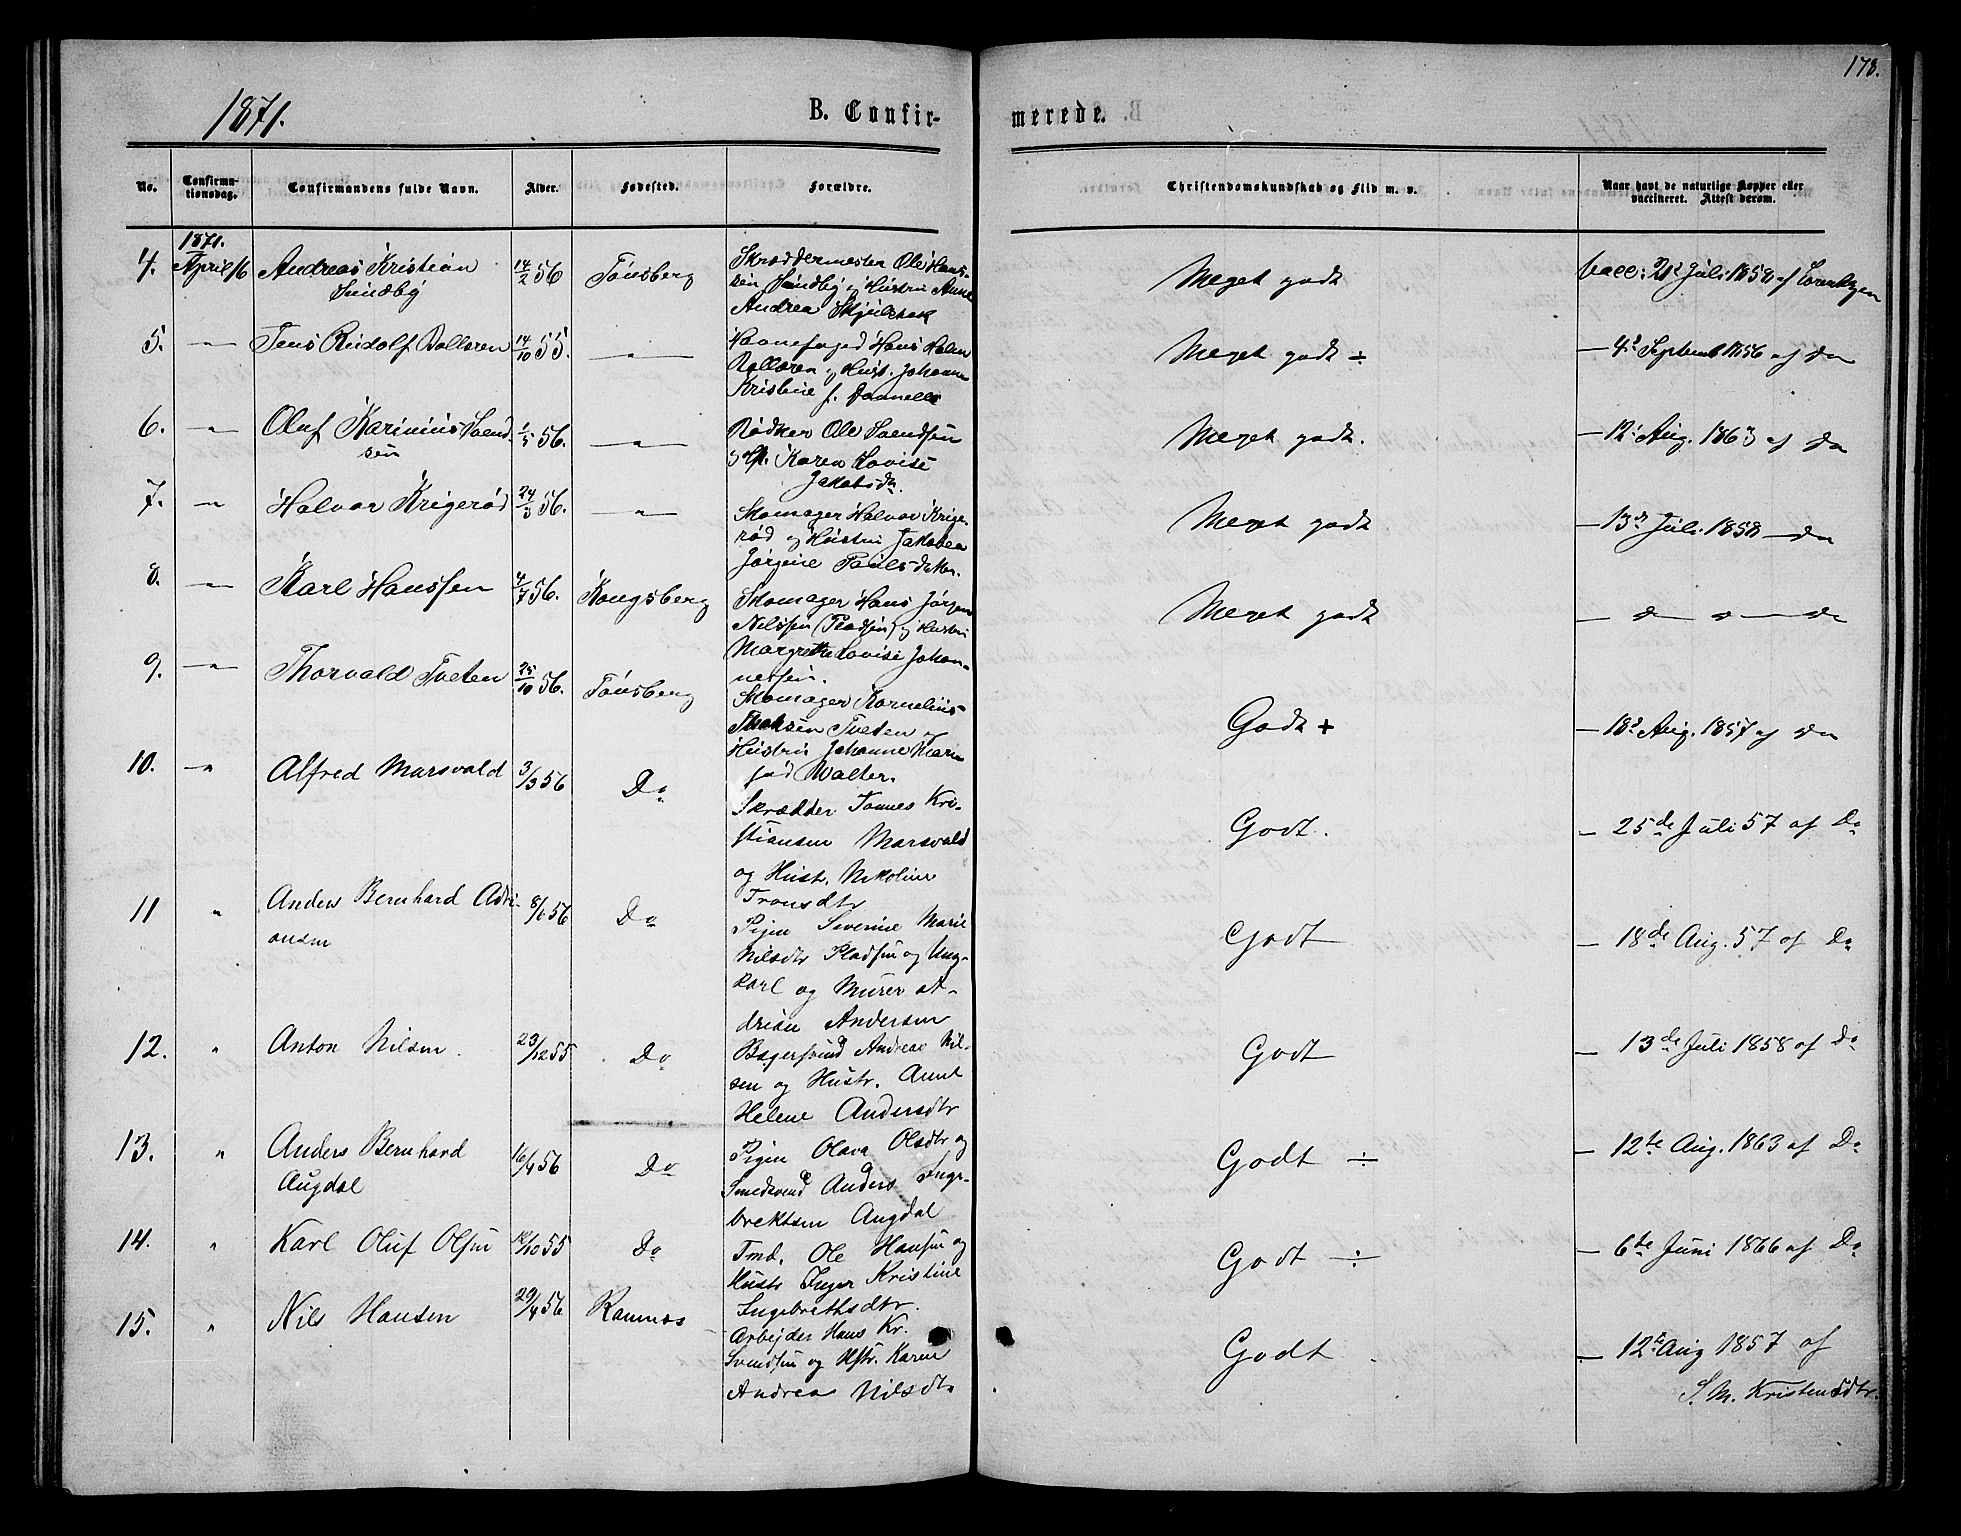 178.
1871.
B. Confir-
merede.
No.
Confirma-
tionsdag.
Confirmandens fulde Navn.
Alder.
Fødested.
Forældre.
Christendomskundskab og Flid m. v.
Naar havt de naturlige Kopper eller
vaccineret. Attest derom.
1871.
4. April 16 Andreas Kristian 14/2 56 Tønsberg Skræddermester Ole Hans- Meget godt Juli 1858 af
Sundby sen Sundby og Hustru Anne
Andrea
5. — " — Jens Rudolf 14/10 55. — " — Havnefoged Hans Holm Meget godt ÷ — 4de Septemb 1856 af Do
og Hust. Johanne
Kristine f.
6. — " — Oluf Karinius Svend- 56. — " — Rødker Ole Svendsen Meget godt. — 12te Aug. 1863 af Do
sen og H. Karen Lovise
Jakobsdr.
7. — " — Halvor Krigerød 24/ 56. — " — Skomager Halvor Krige- Meget godt — 13de Juli 1858 — Do
rød og Hustru Jakobea
Jørgine Paulsdatter.
8. — " — Karl Hanssen 4/7 56. Kongsberg Skomager Hans Jørgen Meget godt — Do Do — Do
Nilssen (Pladsen) og Hustru
Margrethe Lovise Johan-
nessen.
9. — " — Thorvald Tveten 25/10 56. Tønsberg Skomager Kornelius Godt + — 18de Aug. 1857 af Do
Tveten og
Hustru Johanne Marie
fød Walter.
10. — " — Alfred Marsvald 3/3 56 Do Skrædder Tønnes Kri- Godt. — 25de Juli 57 af Do
stiansen Marsvald
og Hust. Nikoline
Tronsdtr
11 " Anders Bernhard Adri- 8/6 56 Do Pigen Severine Marie Godt — 18de Aug. 57 af Do
ansen Nilsdtr Pladsen og Ung-
karl og Murer A-
drian Andersen
12. " Anton Nilsen. 23/12 55 Do Bøgersvend Andreas Nil- Godt — 13de Juli 1858 af Do
sen og Hustr. Anne
Helene Andersdtr
13. " Anders Bernhard 16/4 56 Do Pigen Olava Olsdtr og Godt ÷ — 12te Aug. 1863 af Do
Augdal Smedsvend Anders Inge-
brektsen Augdal
14. " Karl Oluf Olsen /10 55 Do Tmd. Ole Hansen og Godt ÷ — 6te Juni 1866 af Do
Hustr Inger Kristine
Ingebrethsdtr.
15. " Nils Hansen 29/4 56 Ramnæs Arbejder Hans Kr. Godt. — 12te Aug 1857 af
Svendsen og Hstr. Karen
Andrea Nilsdtr S. M. Kristensdtr.